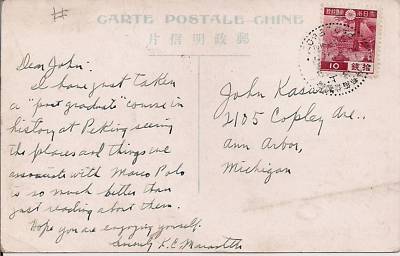 #
CARTE POSTALE-CHINE
片信明政郵
Dear John:
I have just taken
a "post graduate" course in
history at Peking seeing
the places and things we
associate with Marco Polo
is so much better than
just reading about them.
Hope you are enjoying yourself.
Sincerely L.C.
John
2105 Copley Ave.,
Ann Arbor,
Michigan
10 錢拾